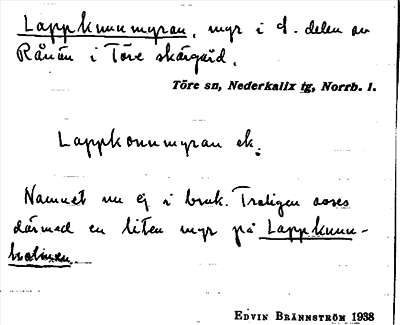 Lappknunmyran, myr i d. delen av
Rånön i Töre skärgård.
Töre sn, Nederkalix tg, Norrb. l.
Lappkonnmyran ek.
Namnet nu ej i bruk. Troligen avses
därmed en liten myr på Lappknun-
holmen.
EDVIN BRÄNNSTRÖM 1938